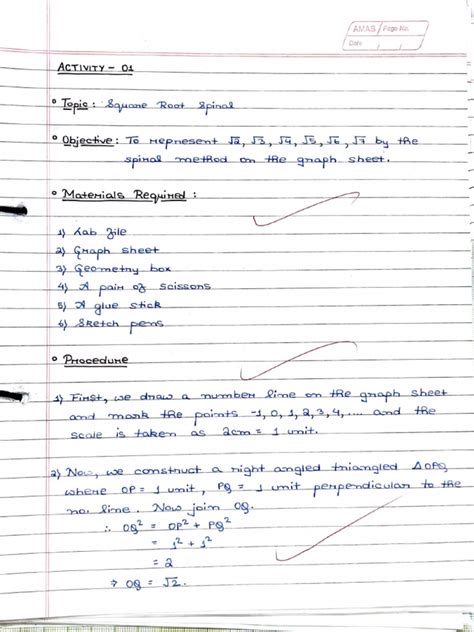 AMAS Page No.
Date
ACTIVITY - 01
• Topic : Square Root Spiral
• Objective : To represent √2, √3, √4, √5, √6, √7 by the
spiral method on the graph sheet.
• Materials Required :
1) Lab file
2) Graph sheet
3) Geometry box
4) A pair of scissors
5) A glue stick
6) Sketch pens
• Procedure
1) First, we draw a number line on the graph sheet
and mark the points -1, 0, 1, 2, 3, 4, .... and the
scale is taken as 2cm = 1 unit.
2) Now, we construct a right angled triangled ΔOPQ
where OP = 1 unit, PQ = 1 unit perpendicular to the
no. line. Now join OQ.
∴ OQ² = OP² + PQ²
= 1² + 1²
= 2
⇒ OQ = √2.